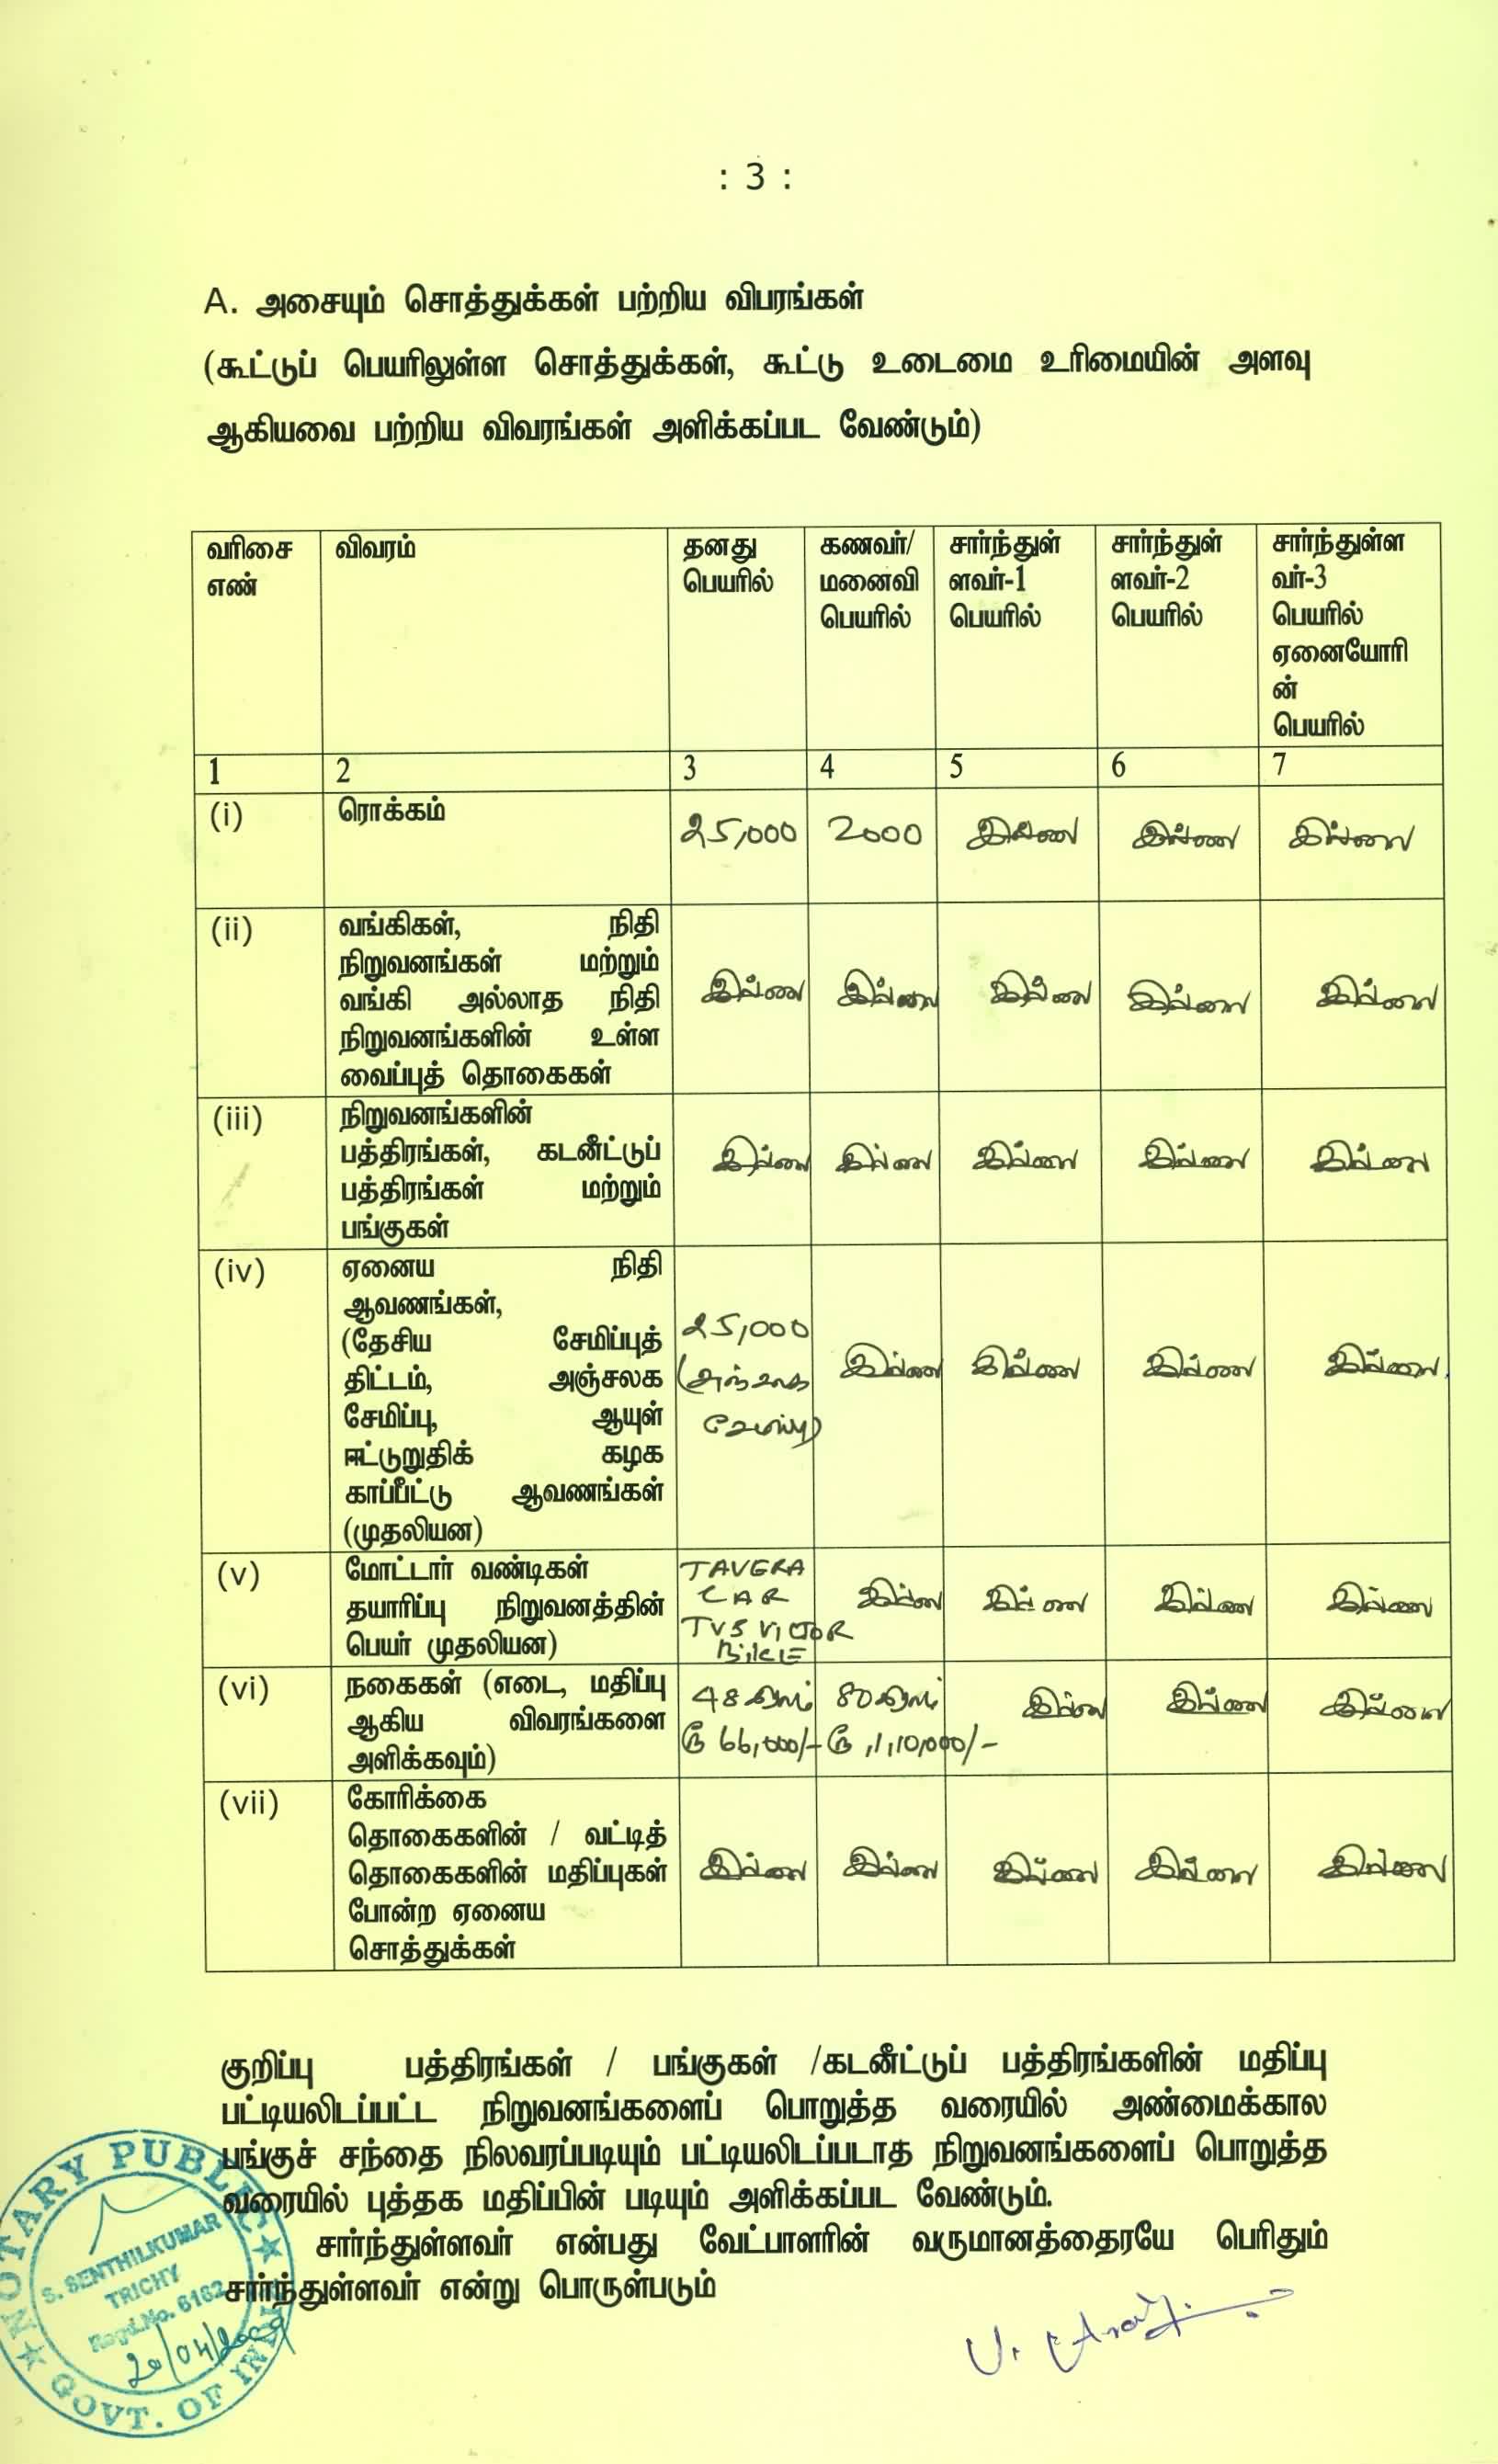 : 3 :
A. அசையும் சொத்துக்கள் பற்றிய விபரங்கள்
(கூட்டுப் பெயரிலுள்ள சொத்துக்கள், கூட்டு உடைமை உரிமையின் அளவு
ஆகியவை பற்றிய விவரங்கள் அளிக்கப்பட வேண்டும்)
வரிசை எண்
விவரம்
தனது பெயரில்
கணவர்/ மனைவி பெயரில்
சார்ந்துள்ளவர்-1 பெயரில்
சார்ந்துள்ளவர்-2 பெயரில்
சார்ந்துள்ளவர்-3 பெயரில் ஏனையோரின் பெயரில்
1 2 3 4 5 6 7
(i) ரொக்கம் 25,000 2000 இல்லை இல்லை இல்லை
(ii) வங்கிகள், நிதி
நிறுவனங்கள் மற்றும்
வங்கி அல்லாத நிதி இல்லை இல்லை இல்லை இல்லை இல்லை
நிறுவனங்களின் உள்ள
வைப்புத் தொகைகள்
(iii) நிறுவனங்களின்
பத்திரங்கள், கடனீட்டுப் இல்லை இல்லை இல்லை இல்லை இல்லை
பத்திரங்கள் மற்றும்
பங்குகள்
(iv) ஏனைய நிதி
ஆவணங்கள்,
(தேசிய சேமிப்புத் 25,000
திட்டம், அஞ்சலக (அஞ்சலக இல்லை இல்லை இல்லை இல்லை
சேமிப்பு, ஆயுள் சேமிப்பு)
ஈட்டுறுதிக் கழக
காப்பீட்டு ஆவணங்கள்
(முதலியன)
(v) மோட்டார் வண்டிகள் TAVERA
தயாரிப்பு நிறுவனத்தின் CAR இல்லை இல்லை இல்லை இல்லை
பெயர் முதலியன) TVS VICTOR
BIKE
(vi) நகைகள் (எடை, மதிப்பு 48 கிராம் 80 கிராம் இல்லை இல்லை இல்லை
ஆகிய விவரங்களை ரூ 66,000/- ரூ 1,10,000/-
அளிக்கவும்)
(vii) கோரிக்கை
தொகைகளின் / வட்டித்
தொகைகளின் மதிப்புகள் இல்லை இல்லை இல்லை இல்லை இல்லை
போன்ற ஏனைய
சொத்துக்கள்
குறிப்பு பத்திரங்கள் / பங்குகள் /கடனீட்டுப் பத்திரங்களின் மதிப்பு
பட்டியலிடப்பட்ட நிறுவனங்களைப் பொறுத்த வரையில் அண்மைக்கால
பங்குச் சந்தை நிலவரப்படியும் பட்டியலிடப்படாத நிறுவனங்களைப் பொறுத்த
வரையில் புத்தக மதிப்பின் படியும் அளிக்கப்பட வேண்டும்.
சார்ந்துள்ளவர் என்பது வேட்பாளரின் வருமானத்தைரயே பெரிதும்
சார்ந்துள்ளவர் என்று பொருள்படும்
NOTARY PUBLIC
S. SENTHILKUMAR
TRICHY
Regd.No. 6162
20/04/2009
GOVT. OF INDIA